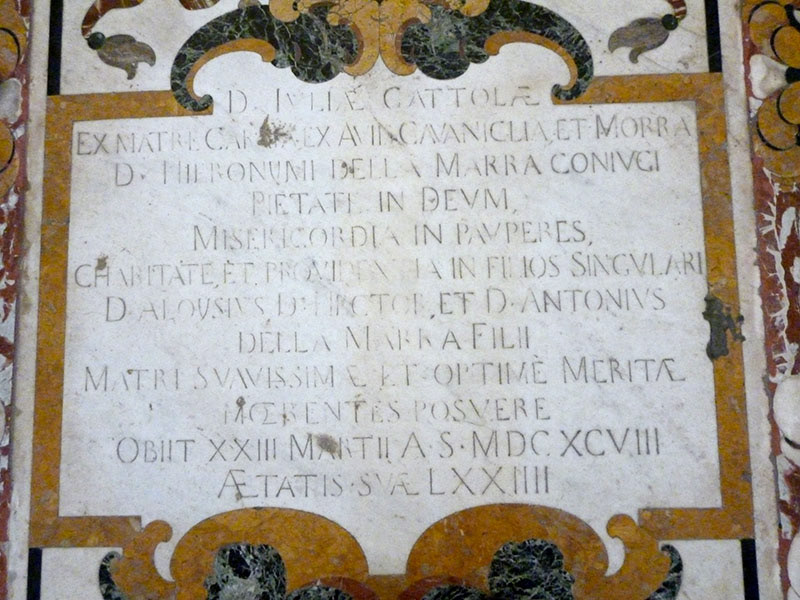 D. IVLIÆ CATTOLÆ
EX MATRE EX AVIN CAVANICLIA, ET MORRA
D. HIERONIMI DELLA MARRA CONIVGI
PIETATE IN DEVM,
MISERICORDIA IN PAVPERES,
CHARITATE, ET PROVIDENTIA IN FILIOS SINGVLARI
D. ALOUSIVS, D. HECTOR, ET D. ANTONIVS
DELLA MARRA FILII
MATRI SVAVISSIMÆ ET OPTIMÈ MERITÆ
MŒRENTES POSVERE
OBIIT XXIII MARTII A. S. MDCXCVIII
ÆTATIS SVÆ LXXIIII